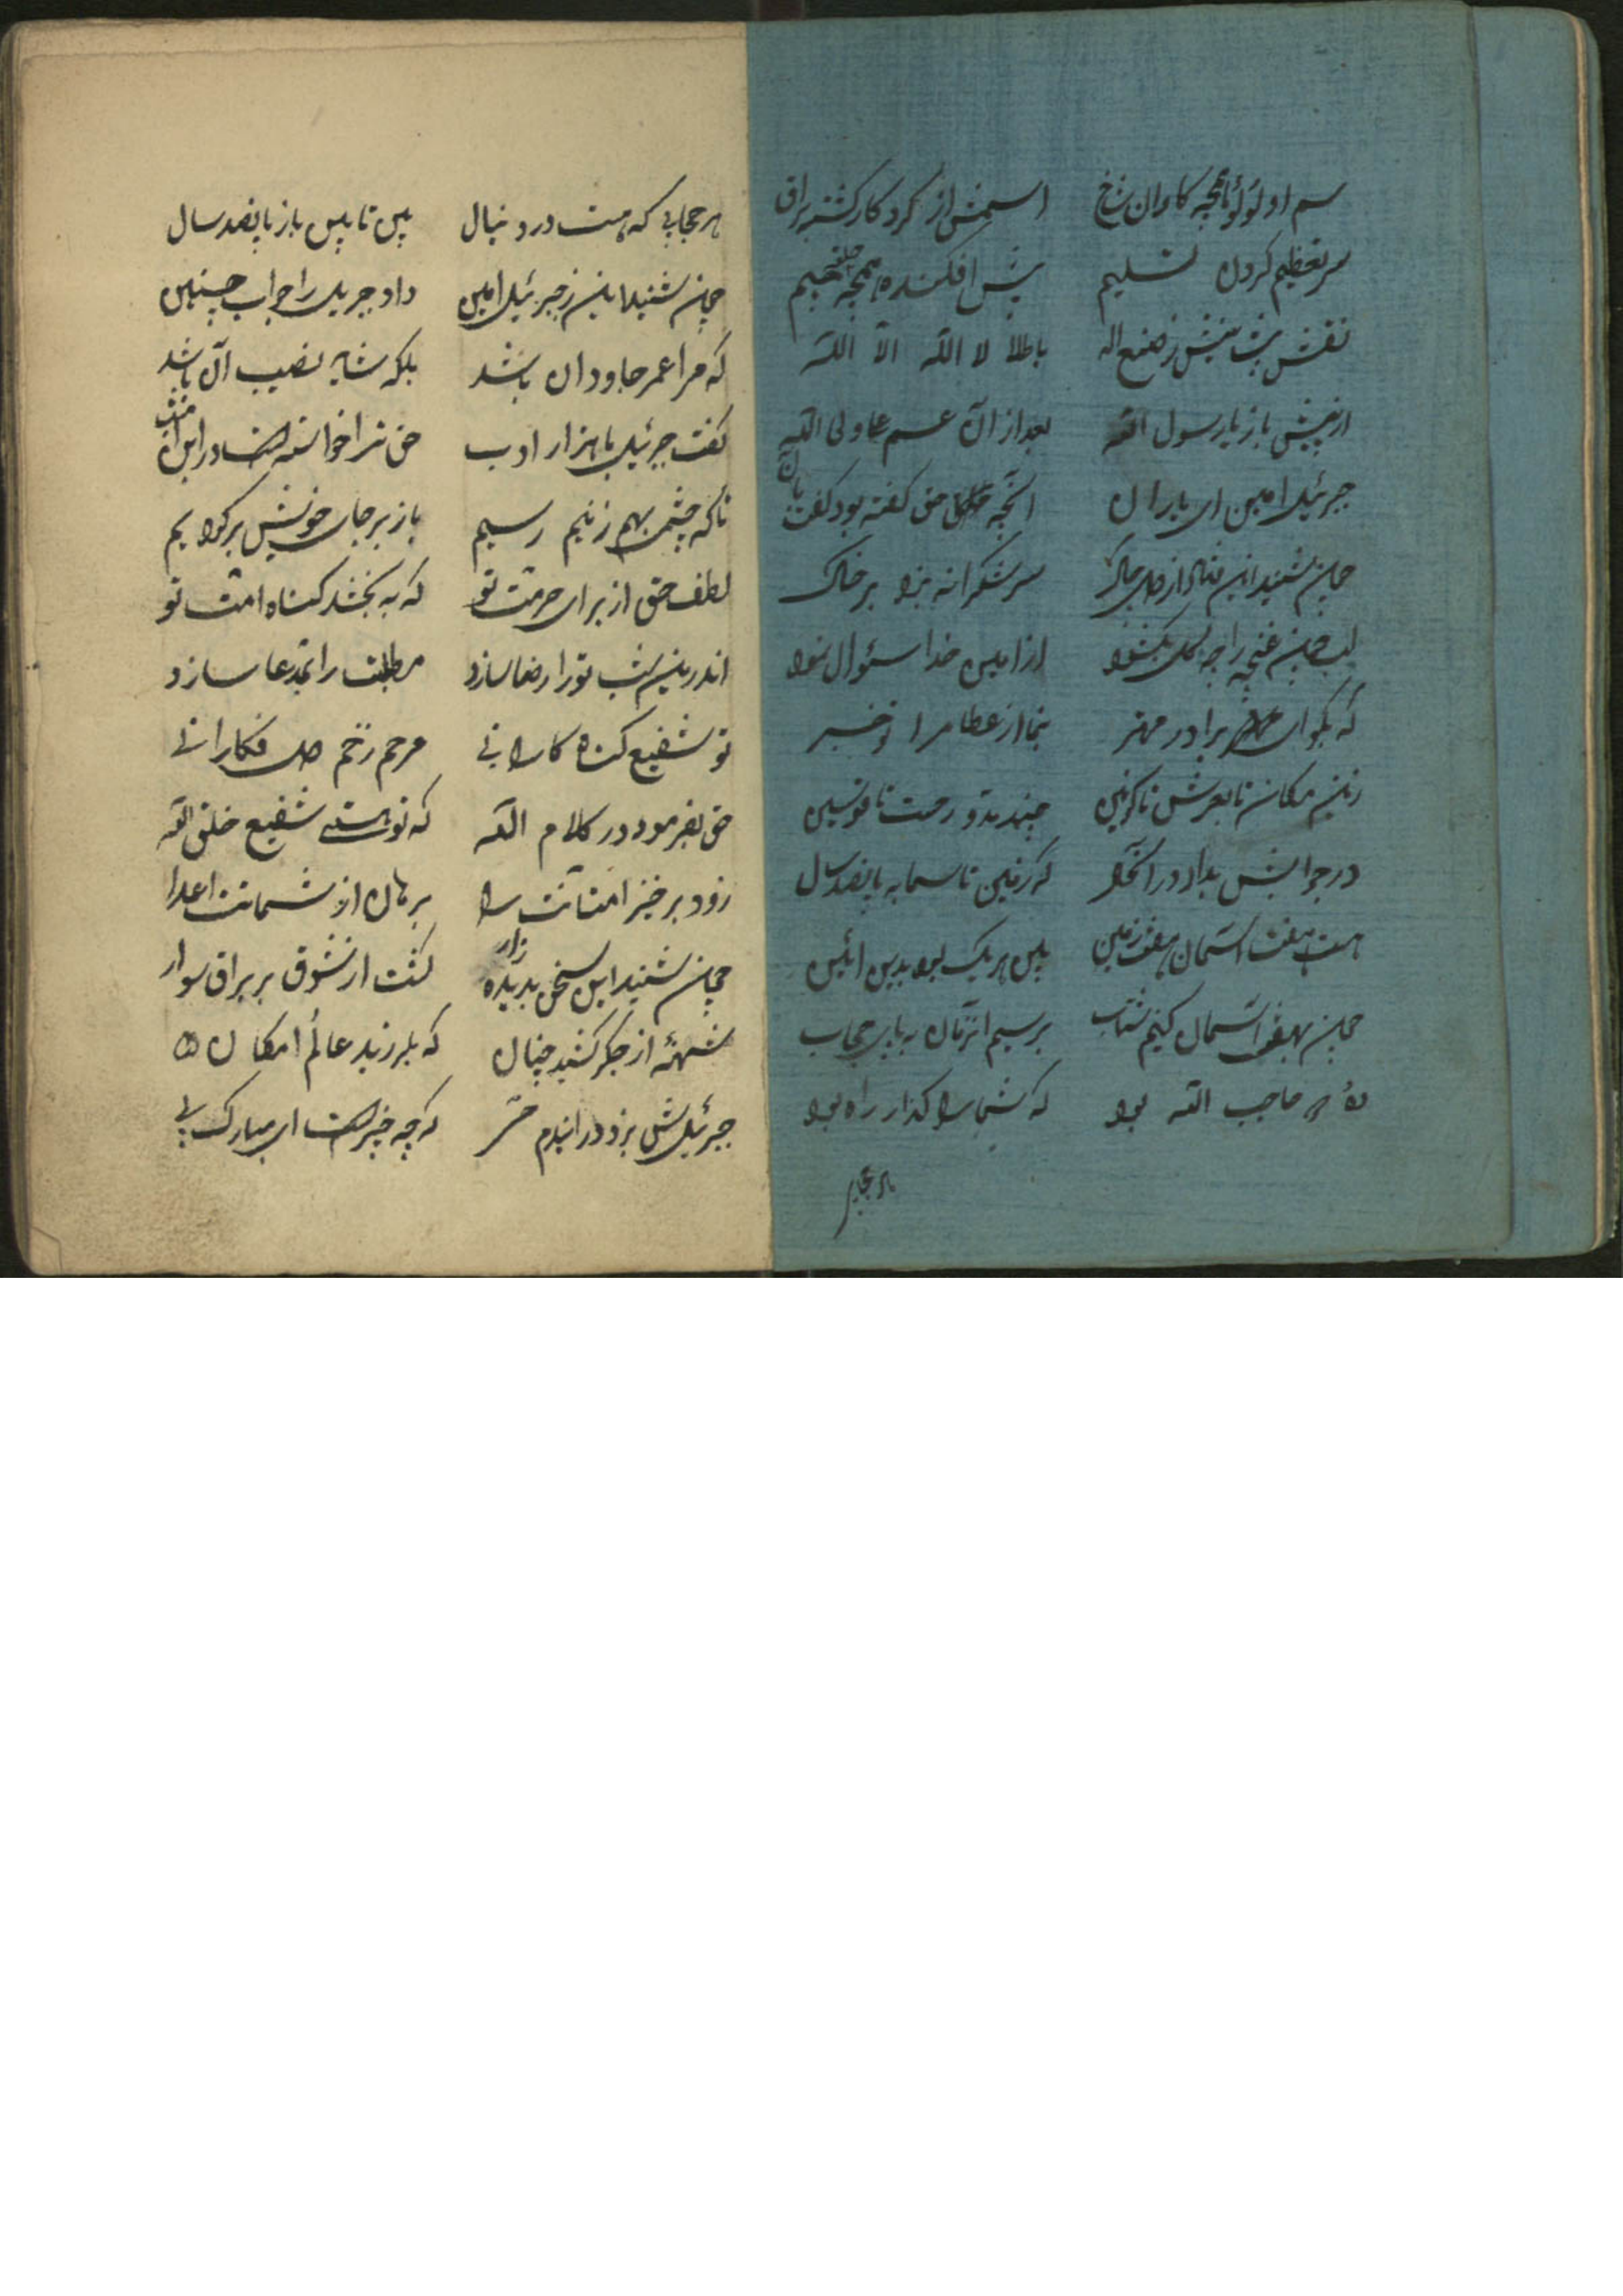 سم او لؤلؤ ناخچه کاوان شاخ اسمش از کردکار کشته براق
سر تعظیم کردن تسلیم پیش افکنده همچه حلقه جیم
نقش پیشانیش ز صنع اله باطلا لا اله الا الله
از پیش باز یا رسول الله بعد از آن اسم علی ولی الله
جبرئیل امین ای یاران آنچه حق گفته بود گفت بآن
چون شنید این از سر شکرانه بزد بر خاک
لب چون غنچه را چه گل بگشود از امین خدا سئوال نمود
که بگو ای برادر مهتر بنما از عطا مرا تو خبر
زین مکان تا بعرش تا کونین چند بد و رحمت تا قوسین
در جوابش بداد در آنحال که زمین تا سما به پانصد سال
هست هفت آسمان هفت زمین پس هر یک بود بدین آئین
چون بهفت آسمان کنیم شتاب برسیم آنزمان به پای حجاب
حاجب الله بود که شما را گذار راه بود
هر حجابی
هر حجابی که هست در دنبال پس تا پس باز پانصد سال
چون شنید این ز جبرئیل امین داد جبریل را جواب چنین
که مرا عمر جاودان باشد بلکه شاید نصیب آن باشد
گفت جبرئیل با هزار ادب حق ترا خواسته است در این شب
تا که چشمی بهم زنیم رسیم باز بر جای خویش برگردیم
لطف حق از برای حرمت تو که به بخشد گناه امت تو
اندرین شب تو را رضا سازد مطلبت را مدعا سازد
تو شفیع گناه کارانی مرحم زخم دل فکارانی
حق بفرمود در کلام الله که تو هستی شفیع خلق الله
زود برخیز امتانت را برهان از شماتت اعدا
چون شنید این سخن بدیده زار گشت از شوق بر براق سوار
شهئه از جگر کشید چنان که بلرزید عالم امکان
جبرئیلش بزد در اندم که چه خبر است ای مبارک پی